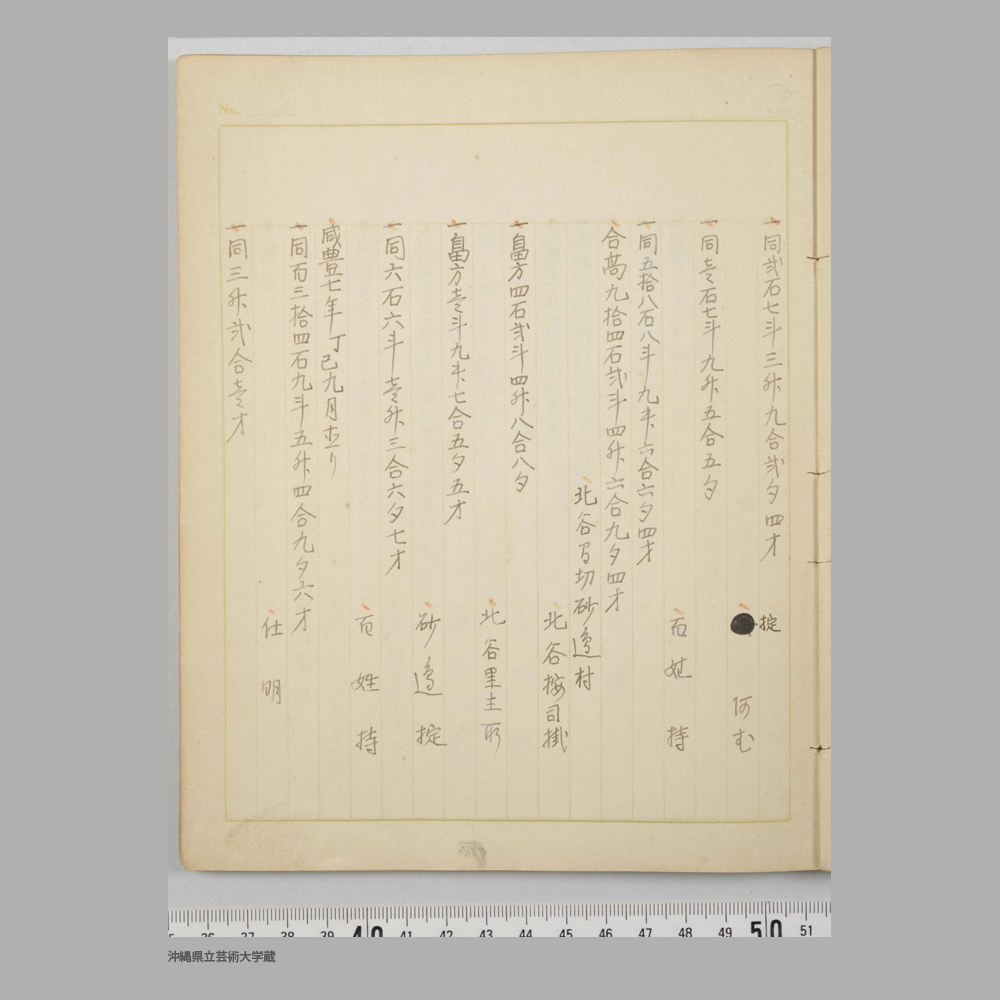 No.
一同弐石七斗三升九合弐夕四才
掟
阿む
一同壱石七斗九升五合五夕
百姓持
一同五拾八石八斗九升六合六夕四才
合高九拾四石弐斗四升六合九夕四才
北谷間切砂邊村
北谷按司掛
一畠方四石弐斗四升八合八夕
北谷里主所
一畠方壱斗九升七合五夕五才
砂邊掟
一同六石六斗壱升三合六夕七才
百姓持
咸豊七年丁巳九月
一同百三拾四石九斗五升四合九夕六才
仕明
一同三升弐合壱才
36 37 38 39 40 41 42 43 44 45 46 47 48 49 50 51
沖縄県立芸術大学蔵